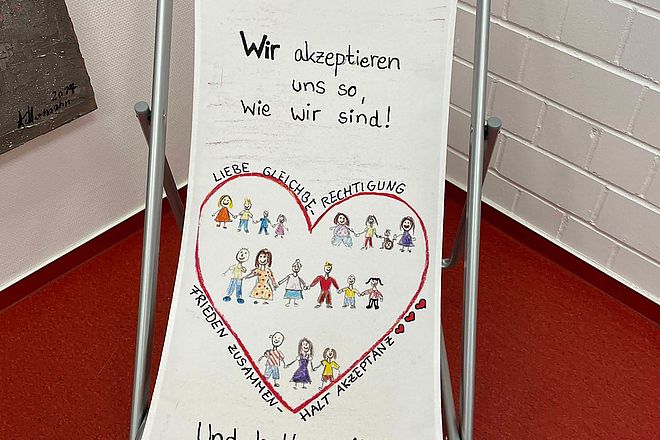 Wir akzeptieren
uns so,
wie wir sind!
LIEBE GLEICHBE-
RECHTIGUNG
FRIEDEN ZUSAMMEN-
HALT AKZEPTANZ
Und
2014